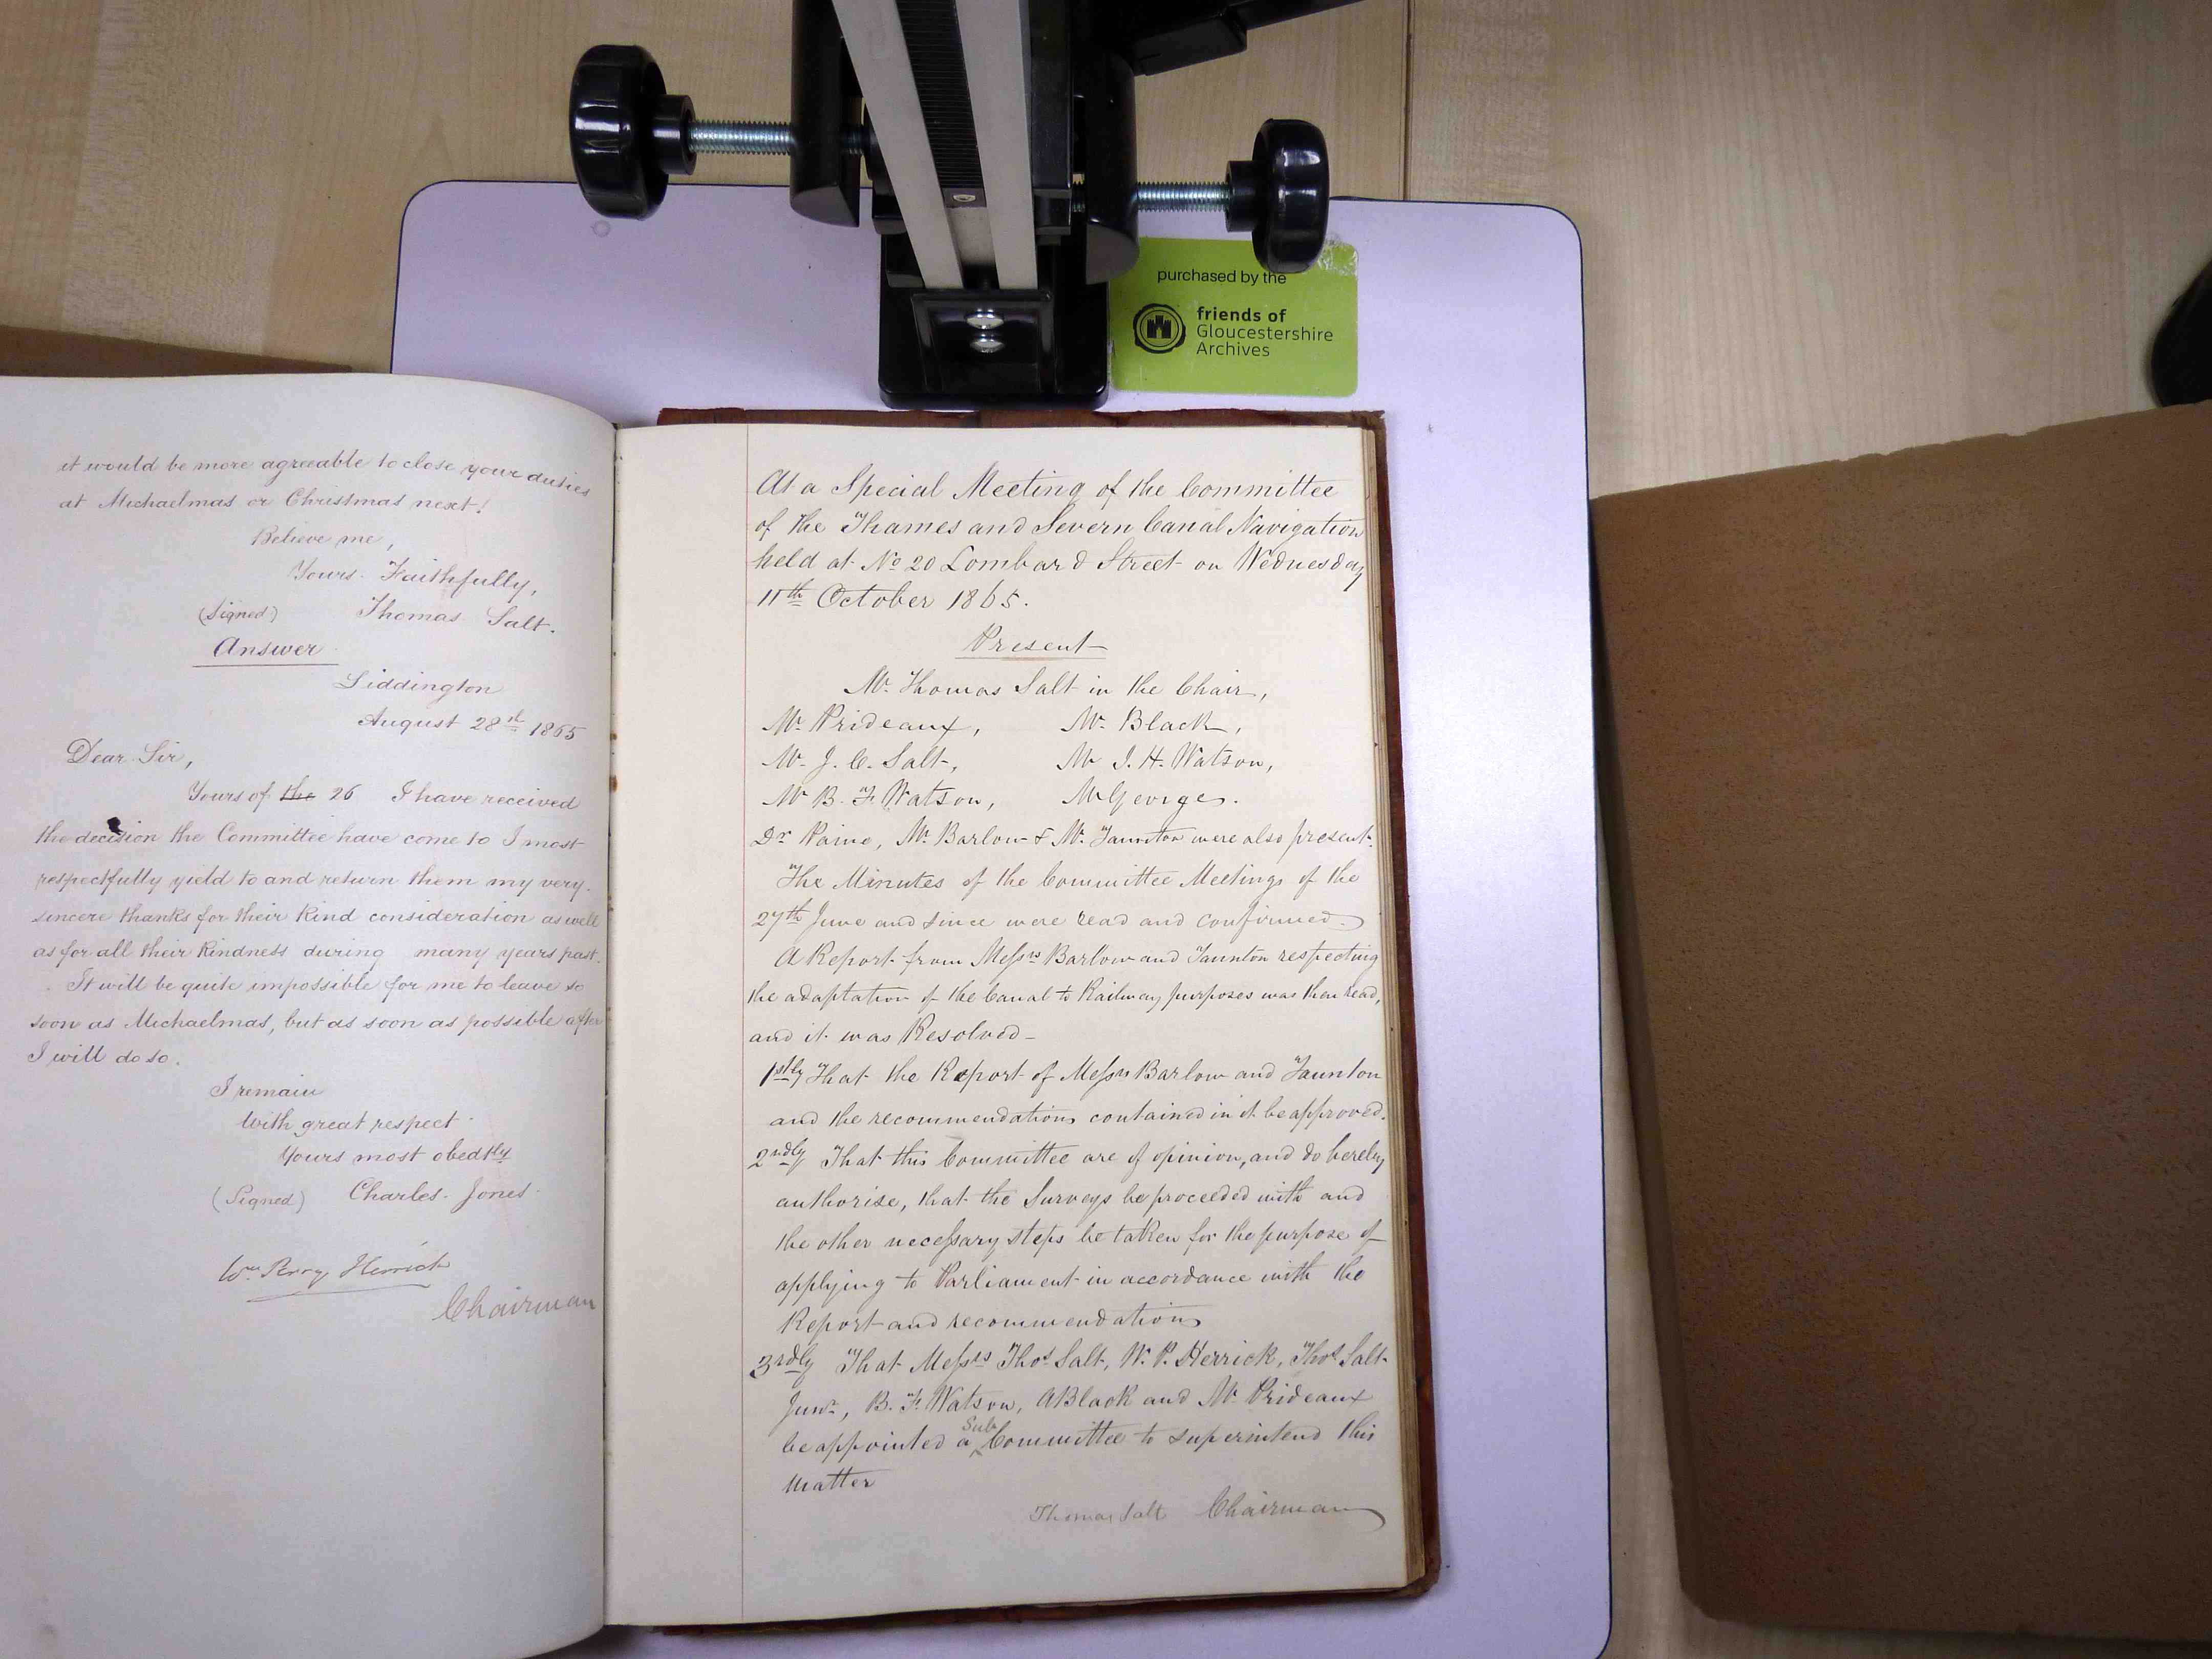 purchased by the
friends of
Gloucestershire
Archives
it would be more agreeable to close your duties
at Michaelmas or Christmas next!
Believe me,
Yours Faithfully,
(Signed) Thomas Salt.
Answer
Siddington
August 28th 1865
Dear Sir,
Yours of the 26 I have received
the decision the Committee have come to I most
respectfully yield to and return them my very
sincere thanks for their kind consideration as well
as for all their kindness during many years past.
It will be quite impossible for me to leave so
soon as Michaelmas, but as soon as possible after
I will do so.
I remain
With great respect
Yours most obedtly
(Signed) Charles Jones
Wm Perry Herrick
Chairman
At a Special Meeting of the Committee
of the Thames and Severn Canal Navigation
held at No 20 Lombard Street on Wednesday
11th October 1865.
Present
Mr Thomas Salt in the Chair,
Mr Prideaux, Mr Black,
Mr J. C. Salt, Mr I. H. Watson,
Mr B. F. Watson, Mr George.
Dr Paine, Mr Barlow & Mr Taunton were also present.
The Minutes of the Committee Meetings of the
27th June and since were read and confirmed.
A Report from Messrs Barlow and Taunton respecting
the adaptation of the Canal to Railway purposes was then read,
and it was Resolved
1stly That the Report of Messrs Barlow and Taunton
and the recommendations contained in it be approved.
2ndly That this Committee are of opinion, and do hereby
authorise, that the Surveys be proceeded with and
the other necessary steps be taken for the purpose of
applying to Parliament in accordance with the
Report and recommendations
3rdly That Messrs Thos Salt, W. P. Herrick, Thos Salt
Junr, B. F. Watson, A Black and Mr Prideaux
be appointed a Sub Committee to superintend this
matter
Thomas Salt Chairman